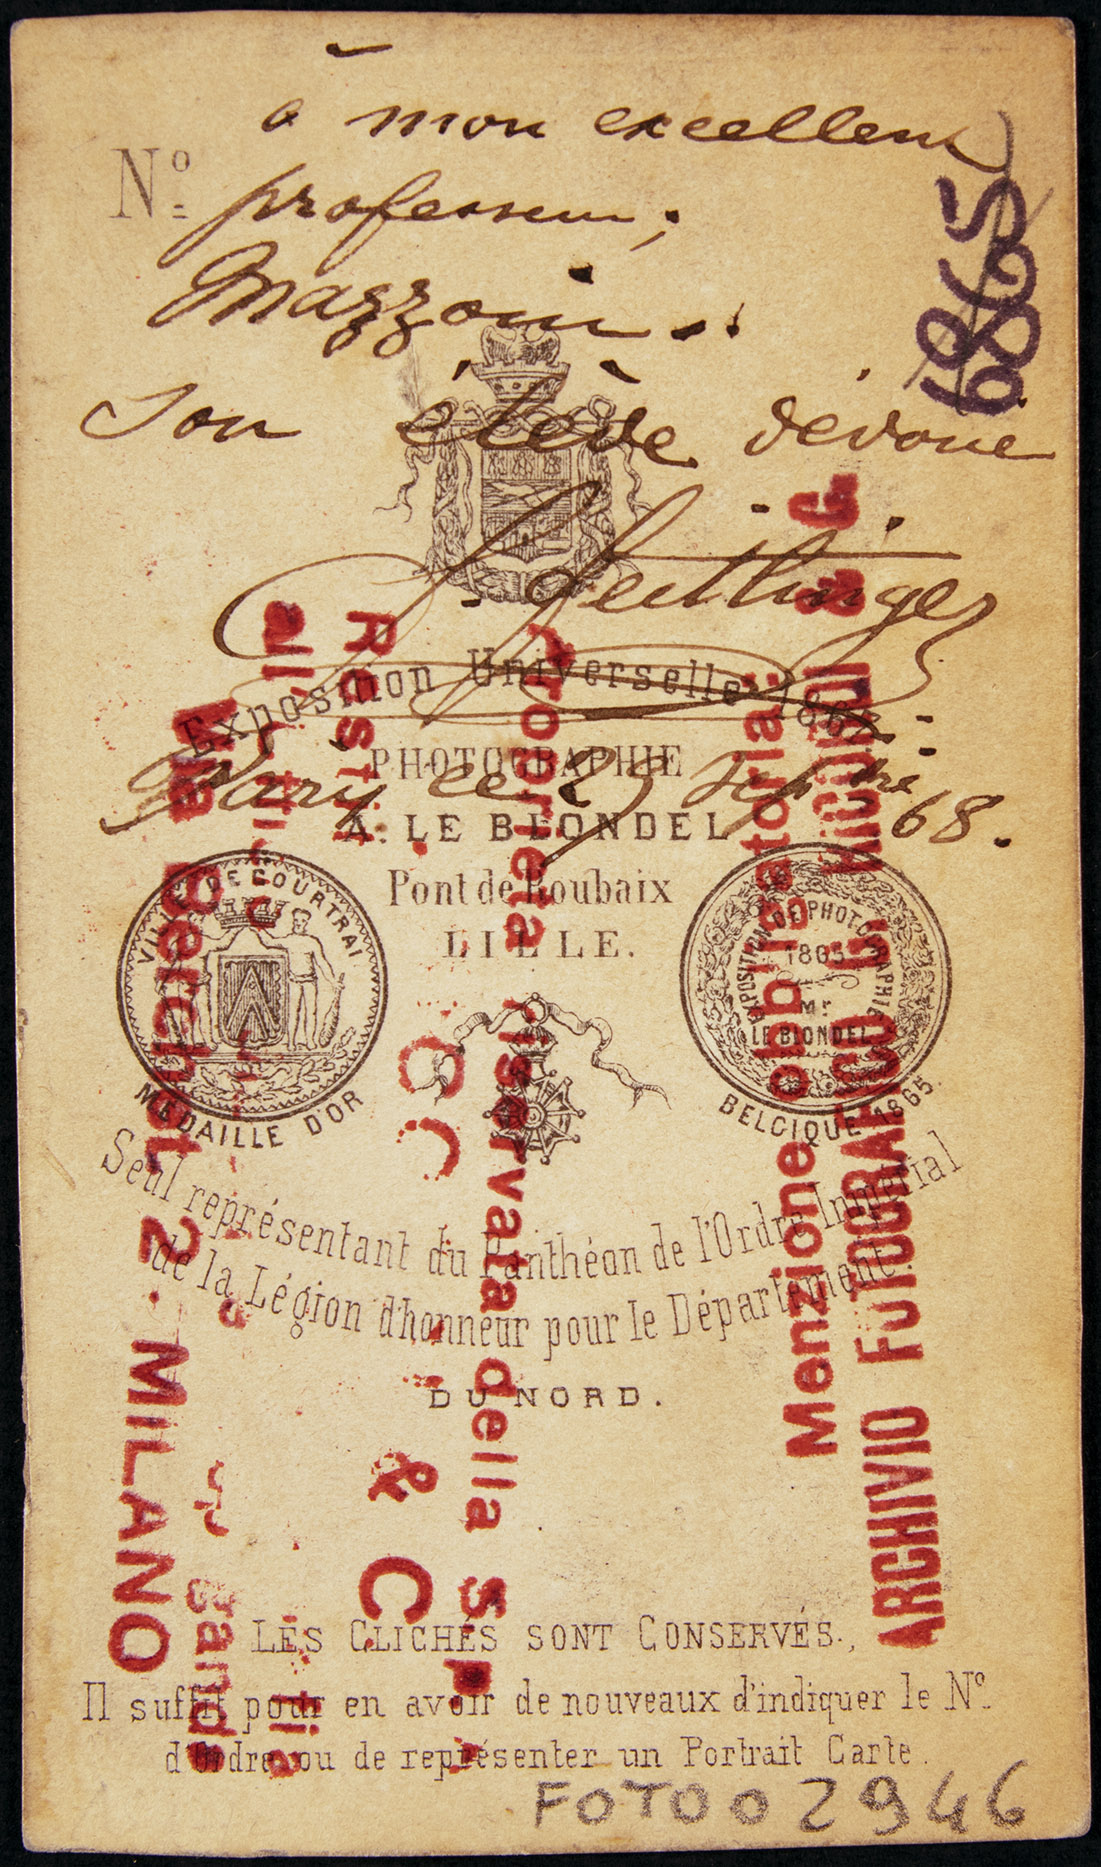 à mon excellent
Nº
professeur,
Mazzoni..
Son élève dévoué
Exposition Universelle 1867
PHOTOGRAPHIE
Paris ce 29 Septbre 68.
A. LE BLONDEL
Pont de Roubaix
LILLE.
VILLE DE COURTRAI
MÉDAILLE D'OR
EXPOSITION DE PHOTOGRAPHIE
1865
Mr
LE BLONDEL
BELGIQUE 1865
Seul représentant du Panthéon de l'Ordre Impérial
de la Légion d'honneur pour le Département
DU NORD.
LES CLICHÉS SONT CONSERVÉS.,
Il suffit pour en avoir de nouveaux d'indiquer le Nº
d'Ordre ou de représenter un Portrait Carte.
FOTO002946
6865
ARCHIVIO FOTOGRAFICO G. RICORDI & C.
Menzione obbligatoria:
Proprietà riservata della
& C.
Via Berchet 2 - MILANO